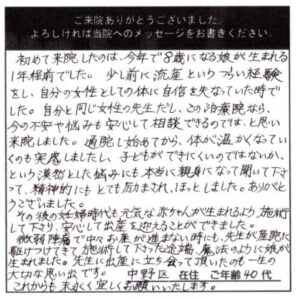 ご来院ありがとうございました。
よろしければ当院へのメッセージをお書きください。
初めて来院したのは、今年で8歳になる娘が生まれる
1年程前でした。少し前に流産というつらい経験
をし、自分の女性としての体に自信を失なっていた時で
した。自分と同じ女性の先生だし、この治療院なら、
今の不安や悩みも安心して相談できるのでは、と思い
来院しました。通院し始めてから、体が温かくなっていく
のも実感しましたし、子どもができにくいのではないか、
という漠然とした悩みにも本当に親身になって聞いて下さ
って、精神的にもとても励まされ、ほっとしました。ありがと
うございました。
その後の妊婦時代も元気な赤ちゃんが生まれるよう、施術
して下さり、安心して出産を迎えることができました。
微弱陣痛で中々お産が進まない時にも、先生が産院に
駆けつけてきて施術して下さった途端、魔法のように娘が
生まれました。先生に出産に立ち会って頂いたのも一生の
大切な思い出です。 中野区 在住 ご年齢40代
これからも末永く宜しくお願いいたします。